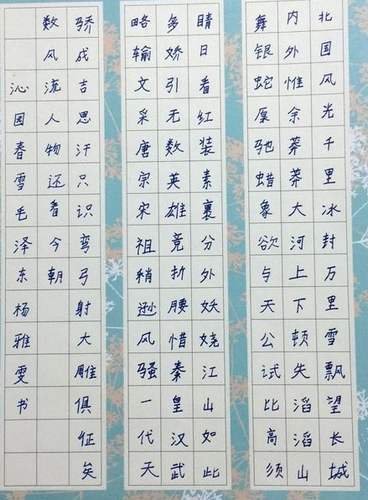 北国风光千里冰封万里雪飘望长城
内外惟余莽莽大河上下顿失滔滔山
舞银蛇原驰蜡象欲与天公试比高须
晴日看红装素裹分外妖娆江山如此
多娇引无数英雄竞折腰惜秦皇汉武
略输文采唐宗宋祖稍逊风骚一代天
骄成吉思汗只识弯弓射大雕俱征矣
数风流人物还看今朝
沁园春雪毛泽东杨雅雯书